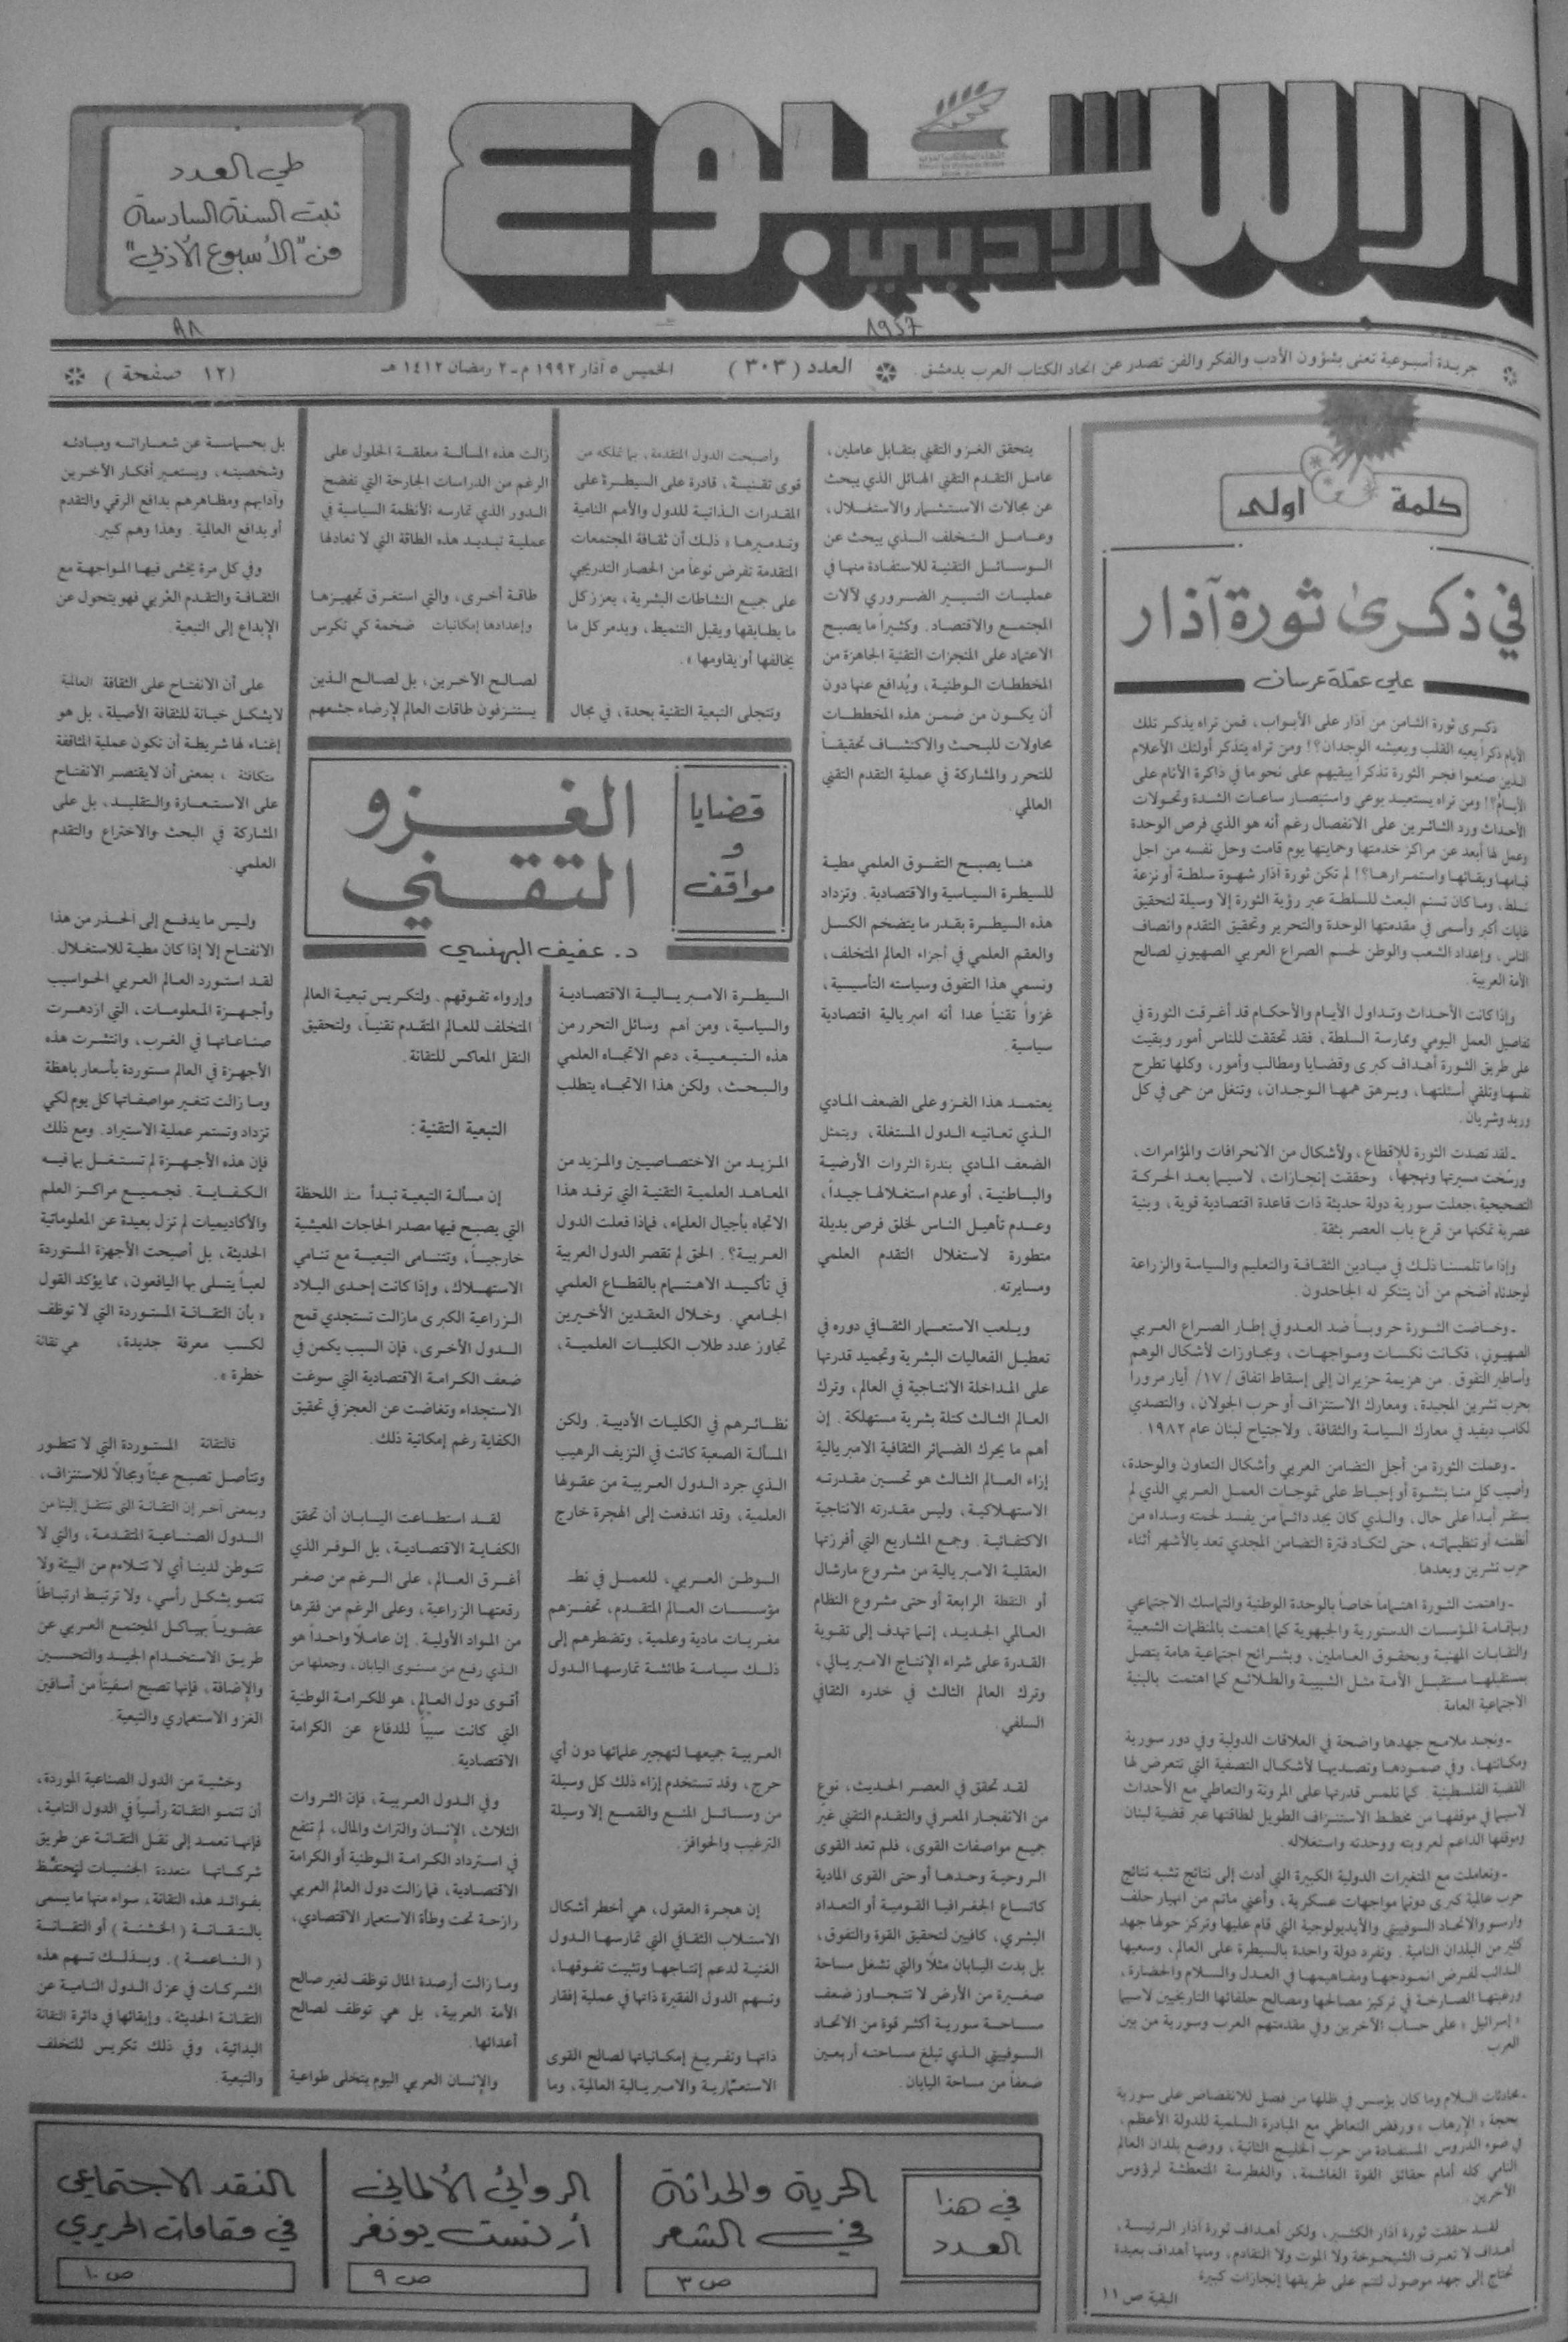 طي العدد
ثبت السنة السادسة
من "الأسبوع الأدبي"
الاسبوع
الادبي
٩٨
١٩٥٧
جريدة أسبوعية تعنى بشؤون الأدب والفكر والفن تصدر عن اتحاد الكتاب العرب بدمشق .
العدد ( ٣٠٣ )
الخميس ٥ آذار ١٩٩٢ م - ٢ رمضان ١٤١٢ هـ
( ١٢ صفحة )
كلمة اولى
في ذكرى ثورة آذار
علي عقلة عرسان
ذكرى ثورة الثامن من آذار على الأبواب ، فمن تراه يذكر تلك
الأيام ذكراً يعيه القلب ويعيشه الوجدان؟! ومن تراه يتذكر أولئك الأعلام
الذين صنعوا فجر الثورة تذكراً يبقيهم على نحو ما في ذاكرة الأنام على
الأيام؟! ومن تراه يستعيد بوعي واستبصار ساعات الشدة وتحولات
الأحداث ورد الثائرين على الانفصال رغم أنه هو الذي فرص الوحدة
وعمل لها أبعد عن مراكز خدمتها وحمايتها يوم قامت وحل نفسه من اجل
قيامها وبقائها واستمرارها؟! لم تكن ثورة آذار شهوة سلطة أو نزعة
تسلط ، وما كان تسنم البعث للسلطة عبر رؤية الثورة إلا وسيلة لتحقيق
غايات أكبر وأسمى في مقدمتها الوحدة والتحرير وتحقيق التقدم وانصاف
الناس ، وإعداد الشعب والوطن لحسم الصراع العربي الصهيوني لصالح
الأمة العربية .
وإذا كانت الأحداث وتداول الأيام والأحكام قد أغرقت الثورة في
تفاصيل العمل اليومي وممارسة السلطة ، فقد تحققت للناس أمور وبقيت
على طريق الثورة أهداف كبرى وقضايا ومطالب وأمور ، وكلها تطرح
نفسها وتلقي أسئلتها ، ويرهق همها الوجدان ، وتنغل من حمى في كل
وريد وشريان .
ـ لقد تصدت الثورة للإقطاع ، ولأشكال من الانحرافات والمؤامرات ،
ورسّخت مسيرتها ونهجها ، وحققت إنجازات ، لاسيما بعد الحركة
التصحيحية ، جعلت سورية دولة حديثة ذات قاعدة اقتصادية قوية ، وبنية
عصرية تمكنها من قرع باب العصر بثقة .
وإذا ما تلمسنا ذلك في ميادين الثقافة والتعليم والسياسة والزراعة
لوجدناه أضخم من أن يتنكر له الجاحدون .
ـ وخاضت الثورة حروباً ضد العدو في إطار الصراع العربي
الصهيوني ، فكانت نكسات ومواجهات ، وتجاوزات لأشكال الوهم
وأساطير التفوق . من هزيمة حزيران إلى إسقاط اتفاق /١٧/ أيار مرورا
بحرب تشرين المجيدة ، ومعارك الاستنزاف أو حرب الجولان ، والتصدي
لكامب ديفيد في معارك السياسة والثقافة ، ولاجتياح لبنان عام ١٩٨٢ .
ـ وعملت الثورة من أجل التضامن العربي وأشكال التعاون والوحدة ،
وأصيب كل منا بنشوة أو إحباط على تموجات العمل العربي الذي لم
يستقر أبداً على حال ، والذي كان يجد دائماً من يفسد لحمته وسداه من
أنظمته أو تنظيماته ، حتى لتكاد فترة التضامن المجدي تعد بالأشهر أثناء
حرب تشرين وبعدها .
ـ واهتمت الثورة اهتماماً خاصاً بالوحدة الوطنية والتماسك الاجتماعي
وبإقامة المؤسسات الدستورية والجبهوية كما إهتمت بالمنظمات الشعبية
والنقابات المهنية وبحقوق العاملين ، وبشرائح اجتماعية هامة يتصل
بمستقبلها مستقبل الأمة مثل الشبيبة والطلائع كما اهتمت بالبنية
الاجتماعية العامة .
ـ ونجد ملامح جهدها واضحة في العلاقات الدولية وفي دور سورية
ومكانتها ، وفي صمودها وتصديها لأشكال التصفية التي تتعرض لها
القضية الفلسطينية . كما نلمس قدرتها على المرونة والتعاطي مع الأحداث
لاسيما في موقفها من مخطط الاستنزاف الطويل لطاقتها عبر قضية لبنان
وموقفها الداعم لعروبته ووحدته واستقلاله .
ـ وتعاملت مع المتغيرات الدولية الكبيرة التي أدت إلى نتائج تشبه نتائج
حرب عالمية كبرى دونما مواجهات عسكرية ، وأعني ماتم من انهيار حلف
وارسو والاتحاد السوفييتي والأيديولوجية التي قام عليها وتركز حولها جهد
كثير من البلدان النامية . وتفرد دولة واحدة بالسيطرة على العالم ، وسعيها
الدائب لفرض انموذجها ومفاهيمها في العدل والسلام والحضارة ،
ورغبتها الصارخة في تركيز مصالحها ومصالح حلفائها التاريخيين لاسيما
« إسرائيل » على حساب الآخرين وفي مقدمتهم العرب وسورية من بين
العرب
ـ محادثات السلام وما كان يؤسس في ظلها من فصل للانقضاض على سورية
بحجة « الإرهاب » ورفض التعاطي مع المبادرة السلمية للدولة الأعظم ،
في ضوء الدروس المستفادة من حرب الخليج الثانية ، ووضع بلدان العالم
النامي كله أمام حقائق القوة الغاشمة ، والغطرسة المتعطشة لرؤوس
الآخرين .
لقد حققت ثورة آذار الكثير ، ولكن أهداف ثورة آذار الرئيسة ،
أهداف لا تعرف الشيخوخة ولا الموت ولا التقادم ، ومنها أهداف بعيدة
تحتاج إلى جهد موصول لتتم على طريقها إنجازات كبيرة
البقية ص ١١
قضايا
و
مواقف
الغزو
التقني
د. عفيف البهنسي
يتحقق الغزو التقني بتقابل عاملين ،
عامل التقدم التقني الهائل الذي يبحث
عن مجالات الاستثمار والاستغلال ،
وعامل التخلف الذي يبحث عن
الوسائل التقنية للاستفادة منها في
عمليات التسيير الضروري لآلات
المجتمع والاقتصاد . وكثيراً ما يصبح
الاعتماد على المنجزات التقنية الجاهزة من
المخططات الوطنية ، ويُدافع عنها دون
أن يكون من ضمن هذه المخططات
محاولات للبحث والاكتشاف تحقيقاً
للتحرر والمشاركة في عملية التقدم التقني
العالمي .
هنا يصبح التفوق العلمي مطية
للسيطرة السياسية والاقتصادية . وتزداد
هذه السيطرة بقدر ما يتضخم الكسل
والعقم العلمي في أجزاء العالم المتخلف ،
ونسمي هذا التفوق وسياسته التأسيسية ،
غزواً تقنياً عدا أنه امبريالية اقتصادية
سياسية .
يعتمد هذا الغزو على الضعف المادي
الذي تعانيه الدول المستغلة ، ويتمثل
الضعف المادي بندرة الثروات الأرضية
والباطنية ، أو عدم استغلالها جيداً ،
وعدم تأهيل الناس لخلق فرص بديلة
متطورة لاستغلال التقدم العلمي
ومسايرته .
ويلعب الاستعمار الثقافي دوره في
تعطيل الفعاليات البشرية وتجميد قدرتها
على المداخلة الانتاجية في العالم ، وترك
العالم الثالث كتلة بشرية مستهلكة . إن
أهم ما يحرك الضمائر الثقافية الامبريالية
إزاء العالم الثالث هو تحسين مقدرته
الاستهلاكية ، وليس مقدرته الانتاجية
الاكتفائية . وجمع المشاريع التي أفرزتها
العقلية الامبريالية من مشروع مارشال
أو النقطة الرابعة أو حتى مشروع النظام
العالمي الجديد ، إنما تهدف إلى تقوية
القدرة على شراء الإنتاج الامبريالي ،
وترك العالم الثالث في خدره الثقافي
السلفي .
لقد تحقق في العصر الحديث ، نوع
من الانفجار المعرفي والتقدم التقني غير
جميع مواصفات القوى ، فلم تعد القوى
الروحية وحدها أو حتى القوى المادية
كاتساع الجغرافيا القومية أو التعداد
البشري ، كافيين لتحقيق القوة والتفوق ،
بل بدت اليابان مثلاً والتي تشغل مساحة
صغيرة من الأرض لا تتجاوز ضعف
مساحة سورية أكثر قوة من الاتحاد
السوفييتي الذي تبلغ مساحته أربعين
ضعفاً من مساحة اليابان .
وأصبحت الدول المتقدمة ، بما تملكه من
قوى تقنية ، قادرة على السيطرة على
المقدرات الذاتية للدول والأمم النامية
وتدميرها « ذلك أن ثقافة المجتمعات
المتقدمة تفرض نوعاً من الحصار التدريجي
على جميع النشاطات البشرية ، يعزز كل
ما يطابقها ويقبل التنميط ، ويدمر كل ما
يخالفها أو يقاومها » .
وتتجلى التبعية التقنية بحدة ، في مجال
السيطرة الامبريالية الاقتصادية
والسياسية ، ومن أهم وسائل التحرر من
هذه التبعية ، دعم الاتجاه العلمي
والبحث ، ولكن هذا الاتجاه يتطلب
المزيد من الاختصاصيين والمزيد من
المعاهد العلمية التقنية التي ترفد هذا
الاتجاه بأجيال العلماء ، فماذا فعلت الدول
العربية؟ . الحق لم تقصر الدول العربية
في تأكيد الاهتمام بالقطاع العلمي
الجامعي . وخلال العقدين الأخيرين
تجاوز عدد طلاب الكليات العلمية ،
نظائرهم في الكليات الأدبية . ولكن
المسألة الصعبة كانت في النزيف الرهيب
الذي جرد الدول العربية من عقولها
العلمية ، وقد اندفعت إلى الهجرة خارج
الوطن العربي ، للعمل في نطـ
مؤسسات العالم المتقدم ، تحفزهم
مغريات مادية وعلمية ، وتضطرهم إلى
ذلك سياسة طائشة تمارسها الدول
العربية جميعها لتهجير علمائها دون أي
حرج ، وقد تستخدم إزاء ذلك كل وسيلة
من وسائل المنع والقمع إلا وسيلة
الترغيب والحوافز .
إن هجرة العقول ، هي أخطر أشكال
الاستلاب الثقافي التي تمارسها الدول
الغنية لدعم إنتاجها وتثبيت تفوقها ،
وتسهم الدول الفقيرة ذاتها في عملية إفقار
ذاتها وتفريغ إمكانياتها لصالح القوى
الاستعمارية والامبريالية العالمية ، وما
زالت هذه المسألة معلقة الحلول على
الرغم من الدراسات الجارحة التي تفضح
الدور الذي تمارسه الأنظمة السياسية في
عملية تبديد هذه الطاقة التي لا تعادلها
طاقة أخرى ، والتي استغرق تجهيزها
وإعدادها إمكانيات ضخمة كي تكرس
لصالح الآخرين ، بل لصالح الذين
يستنزفون طاقات العالم لإرضاء جشعهم
وإرواء تفوقهم . ولتكريس تبعية العالم
المتخلف للعالم المتقدم تقنياً ، ولتحقيق
النقل المعاكس للتقانة .
التبعية التقنية :
إن مسألة التبعية تبدأ منذ اللحظة
التي يصبح فيها مصدر الحاجات المعيشية
خارجياً ، وتتنامى التبعية مع تنامي
الاستهلاك ، وإذا كانت إحدى البلاد
الزراعية الكبرى مازالت تستجدي قمح
الدول الأخرى ، فإن السبب يكمن في
ضعف الكرامة الاقتصادية التي سوغت
الاستجداء وتغاضت عن العجز في تحقيق
الكفاية رغم إمكانية ذلك .
لقد استطاعت اليابان أن تحقق
الكفاية الاقتصادية ، بل الوفر الذي
أغرق العالم ، على الرغم من صغر
رقعتها الزراعية ، وعلى الرغم من فقرها
من المواد الأولية . إن عاملاً واحداً هو
الذي رفع من مستوى اليابان ، وجعلها من
أقوى دول العالم ، هو الكرامة الوطنية
التي كانت سبباً للدفاع عن الكرامة
الاقتصادية .
وفي الدول العربية ، فإن الثروات
الثلاث ، الإنسان والتراث والمال ، لم تنفع
في استرداد الكرامة الوطنية أو الكرامة
الاقتصادية ، فما زالت دول العالم العربي
رازحة تحت وطأة الاستعمار الاقتصادي ،
وما زالت أرصدة المال توظف لغير صالح
الأمة العربية ، بل هي توظف لصالح
أعدائها .
والإنسان العربي اليوم يتخلى طواعية
بل بحماسة عن شعاراته ومبادئه
وشخصيته ، ويستعير أفكار الآخرين
وآدابهم ومظاهرهم بدافع الرقي والتقدم
أو بدافع العالمية . وهذا وهم كبير .
وفي كل مرة يخشى فيها المواجهة مع
الثقافة والتقدم الغربي فهو يتحول عن
الإبداع إلى التبعية .
على أن الانفتاح على الثقافة العالمية
لا يشكل خيانة للثقافة الأصيلة ، بل هو
إغناء لها شريطة أن تكون عملية المثاقفة
متكافئة ، بمعنى أن لا يقتصر الانفتاح
على الاستعارة والتقليد ، بل على
المشاركة في البحث والاختراع والتقدم
العلمي .
وليس ما يدفع إلى الحذر من هذا
الانفتاح إلا إذا كان مطية للاستغلال .
لقد استورد العالم العربي الحواسيب
وأجهزة المعلومات ، التي ازدهرت
صناعاتها في الغرب ، وانتشرت هذه
الأجهزة في العالم مستوردة بأسعار باهظة
وما زالت تتغير مواصفاتها كل يوم لكي
تزداد وتستمر عملية الاستيراد . ومع ذلك
فإن هذه الأجهزة لم تستغل بما فيه
الكفاية . فجميع مراكز العلم
والأكاديميات لم تزل بعيدة عن المعلوماتية
الحديثة ، بل أصبحت الأجهزة المستوردة
لعباً يتسلى بها اليافعون ، مما يؤكد القول
« بأن التقانة المستوردة التي لا توظف
لكسب معرفة جديدة ، هي تقانة
خطرة » .
فالتقانة المستوردة التي لا تتطور
وتتأصل تصبح عبئاً ومجالاً للاستنزاف ،
وبمعنى آخر إن التقانة التي تنتقل إلينا من
الدول الصناعية المتقدمة ، والتي لا
تتوطن لدينا أي لا تتلاءم من البيئة ولا
تنمو بشكل رأسي ، ولا ترتبط ارتباطاً
عضوياً بهياكل المجتمع العربي عن
طريق الاستخدام الجيد والتحسين
والإضافة ، فإنها تصبح اسفيناً من أسافين
الغزو الاستعماري والتبعية .
وخشية من الدول الصناعية الموردة ،
أن تنمو التقانة رأسياً في الدول النامية ،
فإنها تعمد إلى نقل التقانة عن طريق
شركاتها متعددة الجنسيات لتحتفظ
بفوائد هذه التقانة ، سواء منها ما يسمى
بالتقانة ( الخشنة ) أو التقانة
( الناعمة ) . وبذلك تسهم هذه
الشركات في عزل الدول النامية عن
التقانة الحديثة ، وإبقائها في دائرة التقانة
البدائية ، وفي ذلك تكريس للتخلف
والتبعية .
في هذا
العدد
الحرية والحداثة
في الشعر
ص ٣
الروائي الألماني
أرنست يونغر
ص ٩
النقد الاجتماعي
في مقامات الحريري
ص ١٠